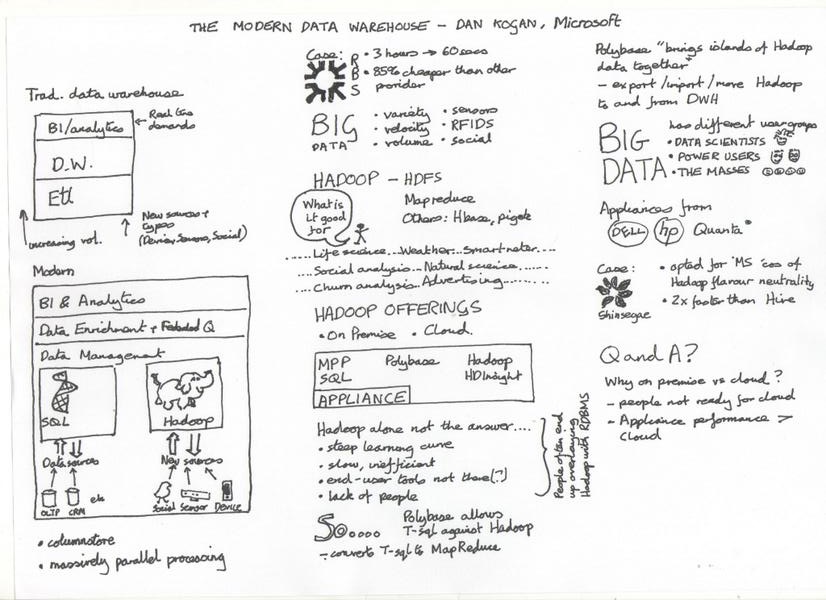 THE MODERN DATA WAREHOUSE - DAN KOGAN, Microsoft
Trad. data warehouse
BI/analytics
← Real time
demands
D.W.
Etl
increasing vol.
New sources +
types
(Device, Sensors, Social)
Modern
BI & Analytics
Data Enrichment + Federated Q
Data Management
SQL
Hadoop
Data sources
New sources
OLTP
CRM
etc
Social
Sensor
DEVICE
• columnstore
• massively parallel processing
Case:
RBS
• 3 hours → 60 secs
• 85% cheaper than other
provider
BIG
DATA
• variety
• velocity
• volume
• sensors
• RFIDS
• social
HADOOP - HDFS
Mapreduce
Others: Hbase, pig etc
What is
it good
for
.....Life science...Weather...Smart meter....
.....Social analysis...Natural science......
....Churn analysis..Advertising.......
HADOOP OFFERINGS
• On Premise • Cloud.
MPP
SQL
Polybase
Hadoop
HDInsight
APPLIANCE
Hadoop alone not the answer....
• steep learning curve
• slow, inefficient
• end-user tools not there(?)
• lack of people
People often end
up overlaying
Hadoop with RDBMS
So....
Polybase allows
T-sql against Hadoop
- converts T-sql to MapReduce
Polybase "brings islands of Hadoop
data together"
- export/import/move Hadoop
to and from DWH
BIG
DATA
has different user groups
• DATA SCIENTISTS
• POWER USERS
• THE MASSES
Appliances from
DELL
hp
Quanta
Case:
Shinsegae
• opted for MS 'cos of
Hadoop flavour neutrality
• 2x faster than Hive
Q and A?
Why on premise vs cloud?
- people not ready for cloud
- Appliance performance >
cloud